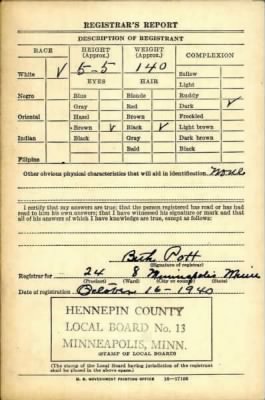 REGISTRAR'S REPORT
DESCRIPTION OF REGISTRANT
RACE HEIGHT (Approx.) WEIGHT (Approx.) COMPLEXION
White ✓ 5-5 140 Sallow
EYES HAIR Light
Negro Blue Blonde Ruddy
Gray Red Dark ✓
Oriental Hazel Brown Freckled
Brown ✓ Black ✓ Light brown
Indian Black Gray Dark brown
Bald Black
Filipino
Other obvious physical characteristics that will aid in identification
I certify that my answers are true; that the person registered has read or has had
read to him his own answers; that I have witnessed his signature or mark and that
all of his answers of which I have knowledge are true, except as follows:
Pott
(Signature of registrar)
Registrar for 24 8 Minneapolis
(Precinct) (Ward) (City or county)
Date of registration October 16-1940
HENNEPIN COUNTY
LOCAL BOARD No. 13
MINNEAPOLIS, MINN.
(STAMP OF LOCAL BOARD)
(The stamp of the Local Board having jurisdiction of the registrant
shall be placed in the above space.)
U. S. GOVERNMENT PRINTING OFFICE 16-17105